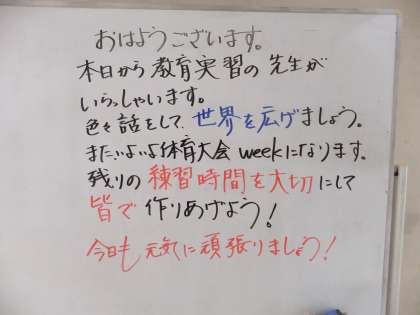 おはようございます。
本日から教育実習の先生が
いらっしゃいます。
色々話をして、世界を広げましょう。
またいよいよ体育大会weekになります。
残りの練習時間を大切にして
皆で作りあげよう！
今日も元気に頑張りましょう！